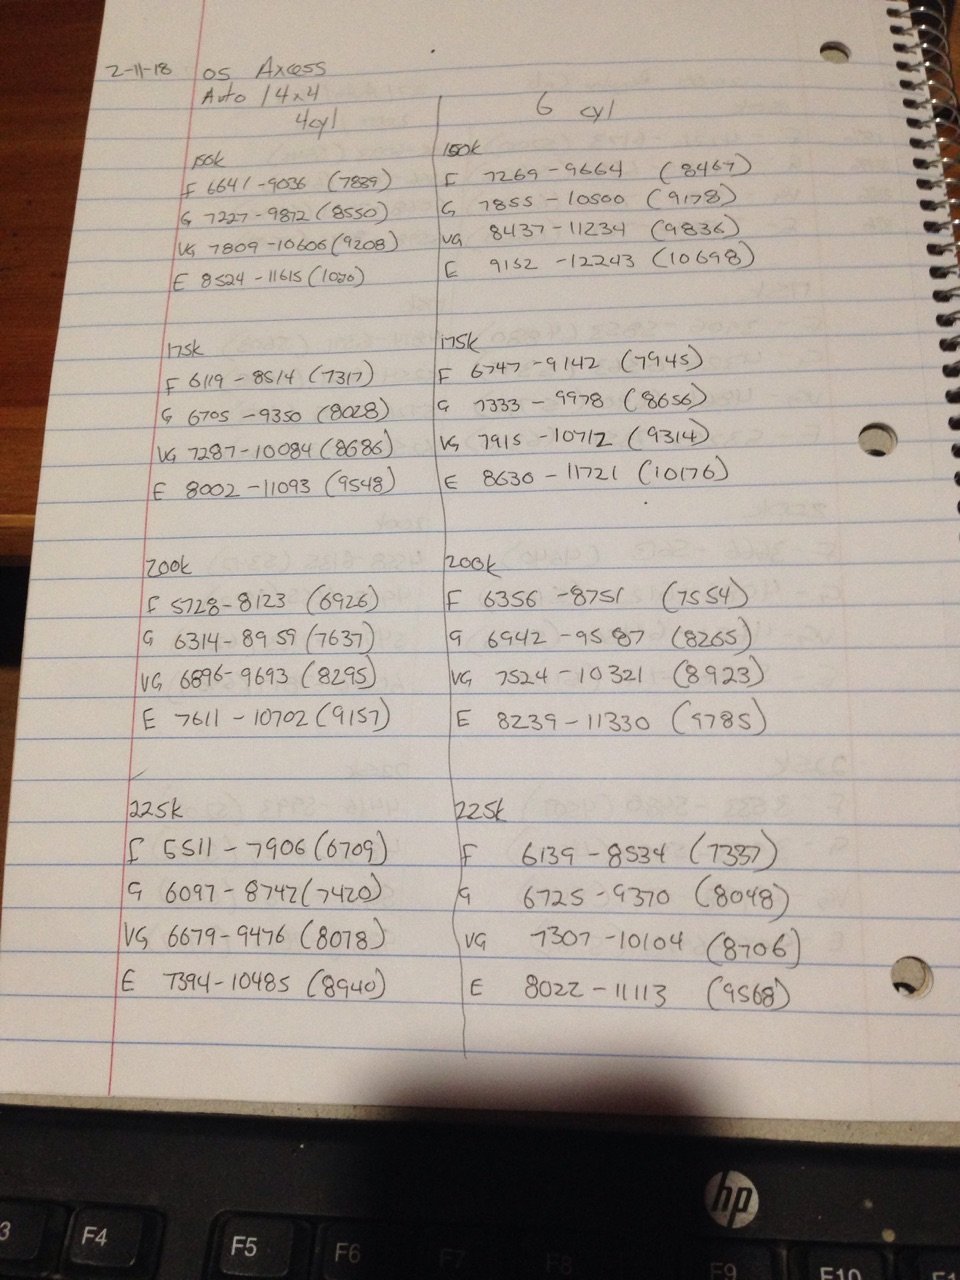 2-11-18 OS Axcess
Auto / 4x4
4cyl
150k
F 6641-9036 (7839)
G 7227-9872 (8550)
VG 7809-10606 (9208)
E 8524-11615 (1070)
175k
F 6119-8514 (7317)
G 6705-9350 (8028)
VG 7287-10084 (8686)
E 8002-11093 (9548)
200k
F 5728-8123 (6926)
G 6314-8959 (7637)
VG 6896-9693 (8295)
E 7611-10702 (9157)
225k
F 5511-7906 (6709)
G 6097-8742 (7420)
VG 6679-9476 (8078)
E 7394-10485 (8940)
6 cyl
150k
F 7269-9664 (8467)
G 7855-10500 (9178)
VG 8437-11234 (9836)
E 9152-12243 (10698)
175k
F 6747-9142 (7945)
G 7333-9978 (8656)
VG 7915-10712 (9314)
E 8630-11721 (10176)
200k
F 6356-8751 (7554)
G 6942-9587 (8265)
VG 7524-10321 (8923)
E 8239-11330 (9785)
225k
F 6139-8534 (7337)
G 6725-9370 (8048)
VG 7307-10104 (8706)
E 8022-11113 (9568)
hp
F4 F5 F6 F7 F8 F9 F10